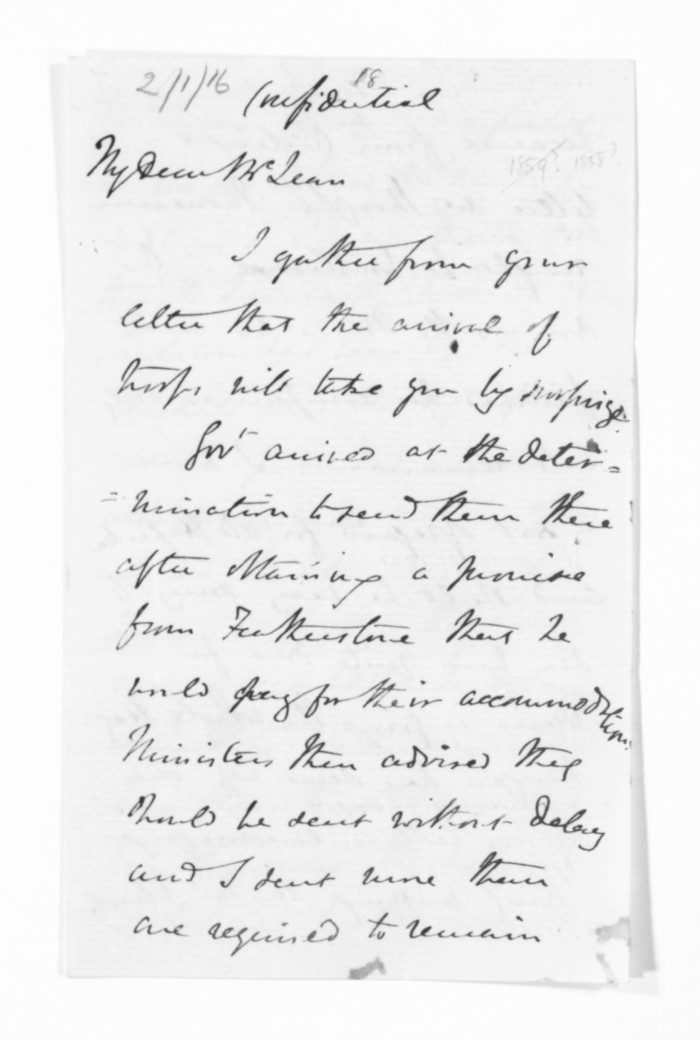 2/1/16
18
Confidential
1859? 1858?
My Dear McLean
I gather from your
letter that the arrival of
troops will take you by surprize.
Govt arrived at the deter=
=mination to send them there
after obtaining a promise
from Featherstone that he
would pay for their accommodation.
Ministers then advised they
should be sent without delay
and I sent more than
are required to remain